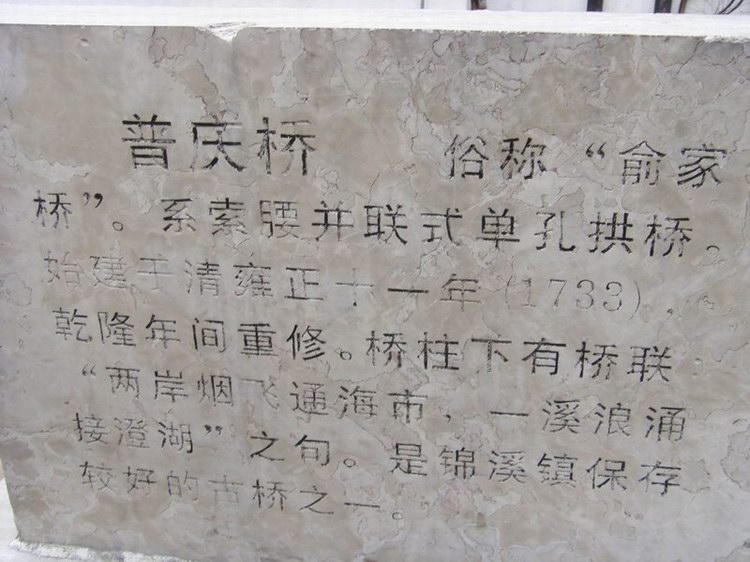 普庆桥 俗称“俞家
桥”。系索腰并联式单孔拱桥。
始建于清雍正十一年(1733),
乾隆年间重修。桥柱下有桥联
“两岸烟飞通海市，一溪浪涌
接澄湖”之句。是锦溪镇保存
较好的古桥之一。